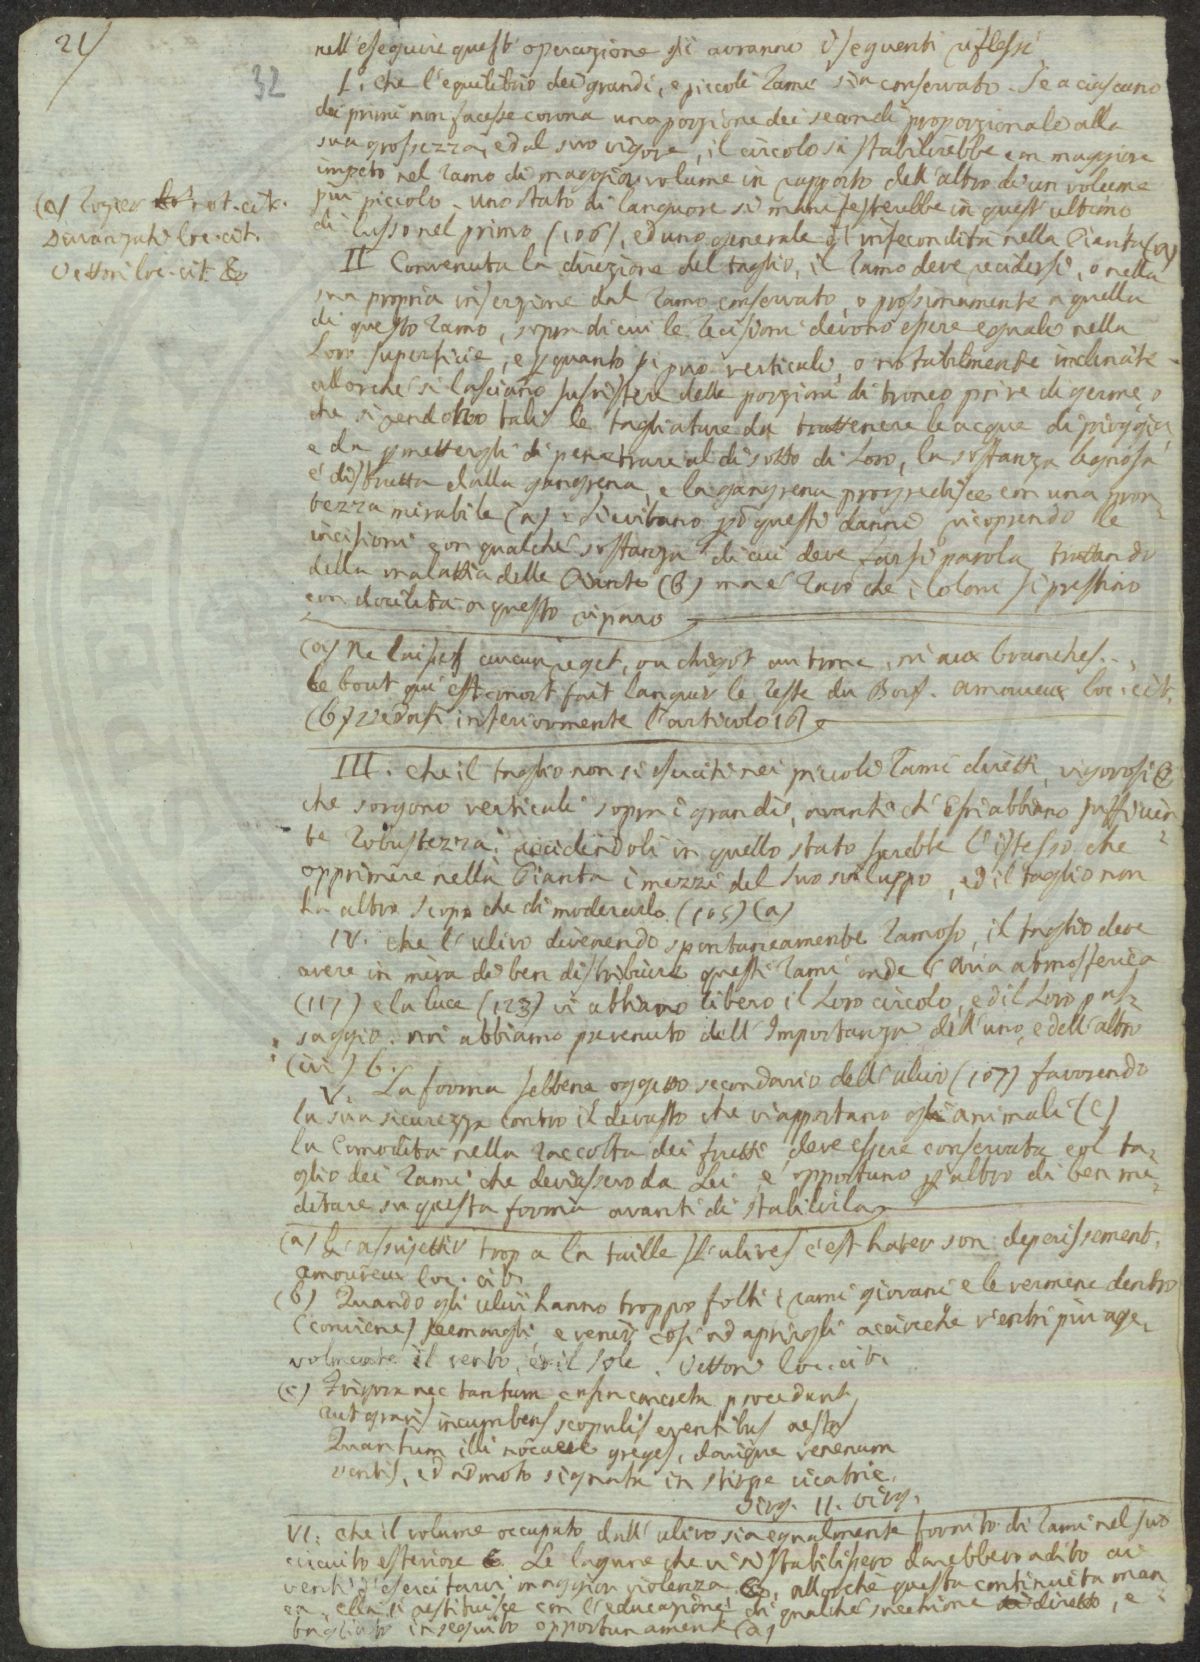 21
32
nell'eseguire quest'operazione si avranno i seguenti riflessi
I. che l'equilibrio dei grandi, e piccoli rami sia conservato. Se a ciascuno
dei primi non facesse corona una porzione dei secondi proporzionale alla
sua grossezza, ed al suo vigore, il circolo si stabilirebbe con maggiore
impeto nel ramo di maggior volume in rapporto dell'altro di un volume
più piccolo. uno stato di languore si manifesterebbe in quest'ultimo
di lusso nel primo (106), ed uno generale d'infecondità nella Pianta (a)
(a) Rozier not. cit.
Davanzati loc. cit.
Vettori loc. cit. &
II Convenuta la direzione del taglio, il ramo deve recidersi, o nella
sua propria inserzione dal ramo conservato, o prossimamente a quella
di questo ramo, sopra di cui le recisioni devono essere eguali nella
loro superficie, e p quanto si può verticali, o notabilmente inclinate.
allorchè si lasciano sussistere delle porzioni di tronco prive di germe, o
che si rendono tali le tagliature da trattenere le acque di pioggia,
e da permettergli di penetrare al di sotto di loro, la sostanza legnosa
è distrutta dalla gangrena, e la gangrena progredisce con una pron-
tezza mirabile (a). Si evitano però questi danni, ricoprendo le
incisioni con qualche sostanza di cui deve farsi parola trattando
della malattia delle Piante (b) ma è raro che i Coloni si prestino
con docilità a questo riparo
(a) Ne laissez aucun jeget, ou chigot au tronc, ni aux branches...
le bout qui est mort fait languir le reste du Bois. Amoureux loc. cit.
(b) Vedasi inferiormente l'articolo 16
III. che il taglio non si eserciti nei piccoli rami diretti, vigorosi &
che sorgono verticali sopra i grandi, avanti ch'Essi abbiano sufficien-
te robustezza: recidendoli in quello stato sarebbe l'istesso che
opprimere nella Pianta i mezzi del suo sviluppo, ed il taglio non
ha altro scopo che di moderarlo. (105) (a)
IV. che l'ulivo divenendo spontaneamente ramoso, il taglio deve
avere in mira di ben distribuire questi rami onde l'Aria atmosferica
(117) e la luce (123) vi abbiano libero il loro circolo, ed il loro pas-
saggio. noi abbiamo prevenuto dell'Importanza dell'uno, e dell'altro
(ivi) b.
V. La forma sebbene oggetto secondario dell'ulivo (107) favorendo
la sua sicurezza contro il devasto che vi apportano gli animali (c)
la Comodità nella raccolta dei frutti deve essere conservata col ta-
glio dei rami che deviassero da Lei, è opportuno p altro di ben me-
ditare su questa forma avanti di stabilirla
(a) L'assujettir trop a la taille l'olives c'est hater son deperissement.
Amoureux loc. cit.
(b) Quando gli ulivi hanno troppo folti i rami giovani e le vermene dentro
(conviene) scemargli, e venir così ad aprirgli acciocchè v'entri più age-
volmente il vento, ed il sole. Vettori loc. cit.
(c) Frigora nec tantum cana concreta procedunt
aut gravis incumbens scopulis arentibus aestas
Quantum illi nocuere greges, durique venenum
dentis, et admorso signata in stirpe cicatrix.
Virg. II. Georg.
VI. che il volume occupato dall'ulivo sia egualmente fornito di rami nel suo
circuito esteriore. Le lagune che vi si stabilissero darebbero adito ai
venti d'esercitarvi maggior violenza. allorchè questa continuità man-
ca, ella si restituisce con l'educazione di qualche succhione diretto, e
tagliato in seguito opportunamente (a)